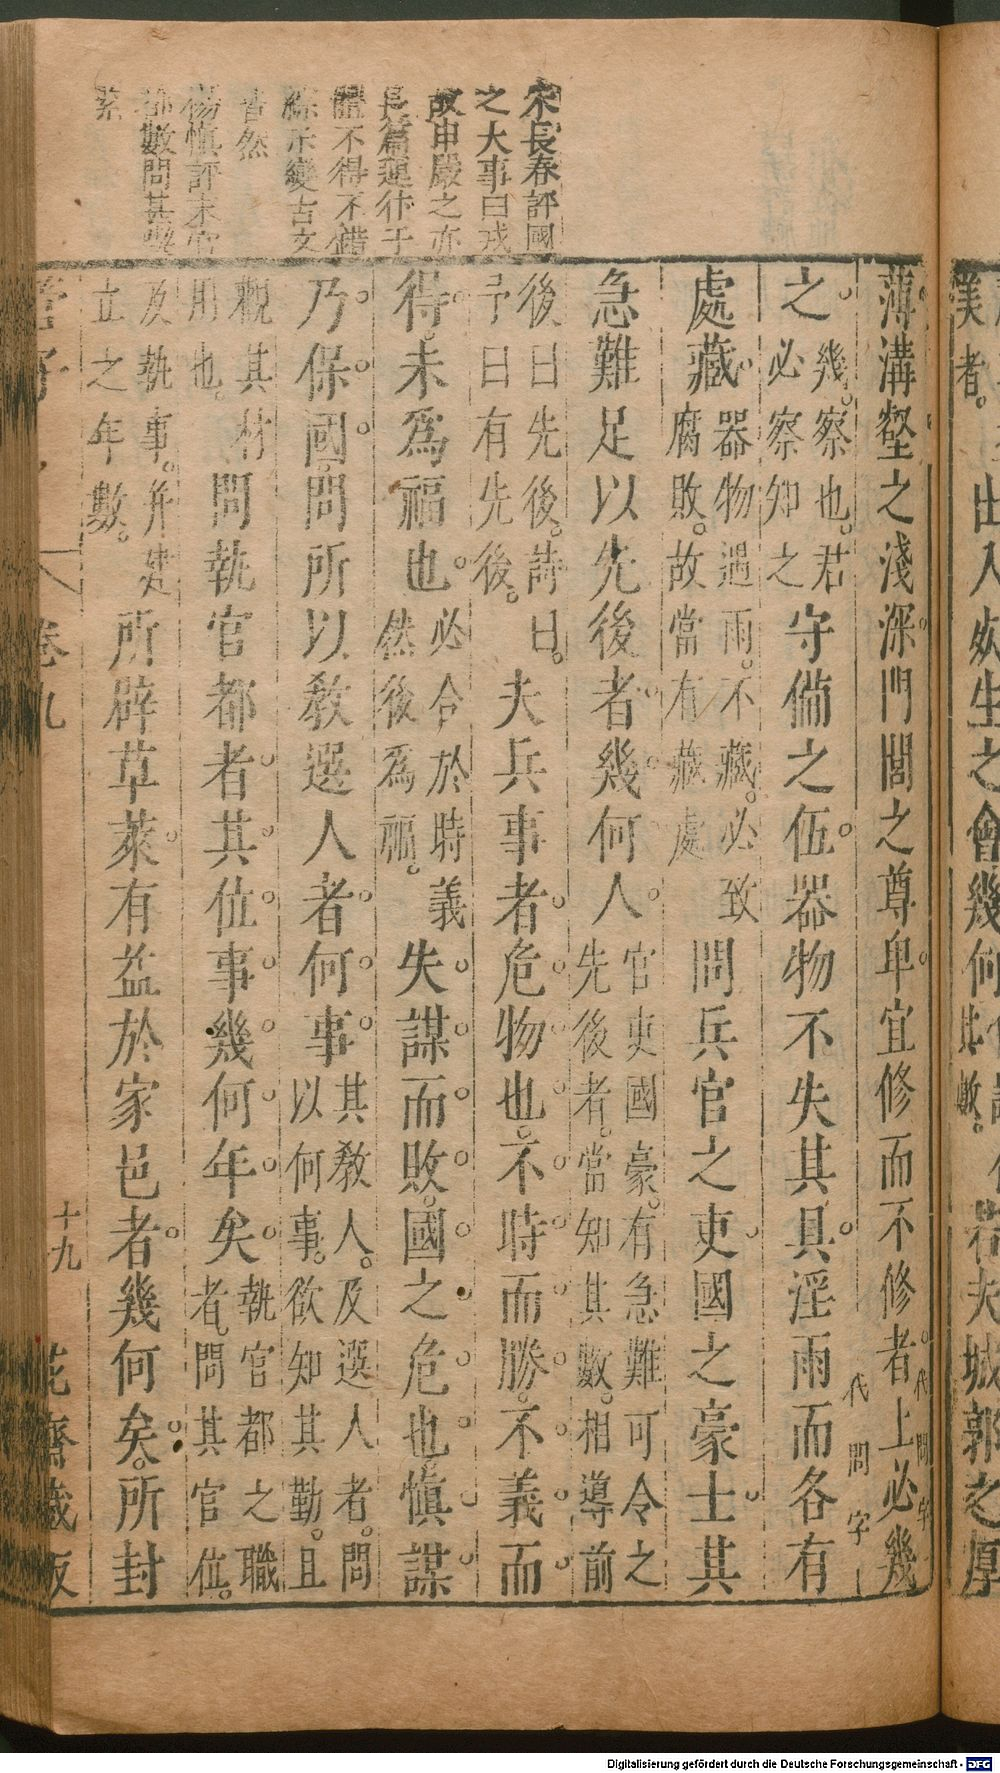 宋長春評國
之大事曰戎
故申嚴之亦
長篇運佈于
體不得不錯
綜示變古文
皆然
楊慎評末官
都數問甚喫
緊
薄溝壑之淺深門閭之尊卑宜修而不修者上必幾
代問字
之幾察也君必察知之守備之伍器物不失其具淫雨而各有
代問字
處藏器物遇雨不藏必致腐敗故當有藏處問兵官之吏國之豪士其
急難足以先後者幾何人官吏國豪有急難可令之先後者當知其數相導前
後曰先後詩曰予曰有先後夫兵事者危物也不時而勝不義而
得未爲福也必合於時義然後爲福失謀而敗國之危也慎謀
乃保國問所以教選人者何事其教人及選人者問以何事欲知其勤且
觀其材用也問執官都者其位事幾何年矣執官都之職者問其官位
及執事并建立之年數所辟草萊有益於家邑者幾何矣所封
管子
卷九
十九
花齋藏板
美者
出入死生之會幾何
其數
若夫城郭之厚
Digitalisierung gefördert durch die Deutsche Forschungsgemeinschaft - DFG